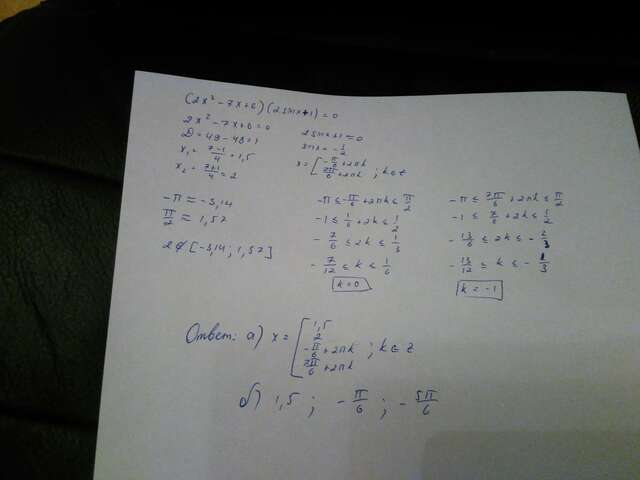 (2x² - 7x + 6)(2sinx + 1) = 0
2x² - 7x + 6 = 0
D = 49 - 48 = 1
x₁ = (7-1)/4 = 1,5
x₂ = (7+1)/4 = 2
2sinx + 1 = 0
sinx = -1/2
x = [ -π/6 + 2πk
7π/6 + 2πk ; k ∈ z
-π ≈ -3,14
π/2 ≈ 1,57
2 ∉ [-3,14; 1,57]
-π ≤ -π/6 + 2πk ≤ π/2
-1 ≤ 1/6 + 2k ≤ 1/2
-7/6 ≤ 2k ≤ 1/3
-7/12 ≤ k ≤ 1/6
k = 0
-π ≤ 7π/6 + 2πk ≤ π/2
-1 ≤ 7/6 + 2k ≤ 1/2
-13/6 ≤ 2k ≤ -2/3
-13/12 ≤ k ≤ -1/3
k = -1
Ответ: а) x = [ 1,5
2
-π/6 + 2πk ; k ∈ z
7π/6 + 2πk
б) 1,5 ; -π/6 ; -5π/6